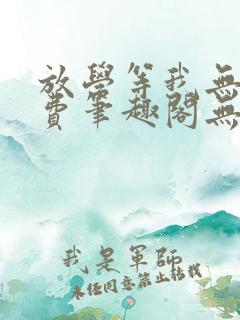 放學等我無
費筆趣閣無
我是軍師
未经同意禁止转载